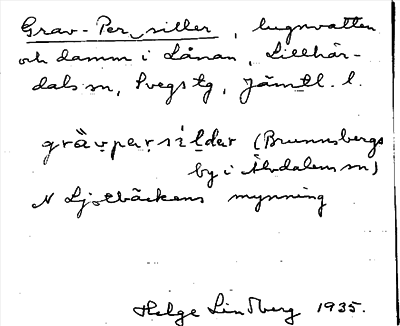 Grav-Per siller, lugnvatten
och damm i Lånan, Lillhär-
dals sn, Svegs tg, Jämtl. l.
(Brunnsbergs
by i Älvdalens sn)
N Ljotbäckens mynning
Helge Lindberg 1935.